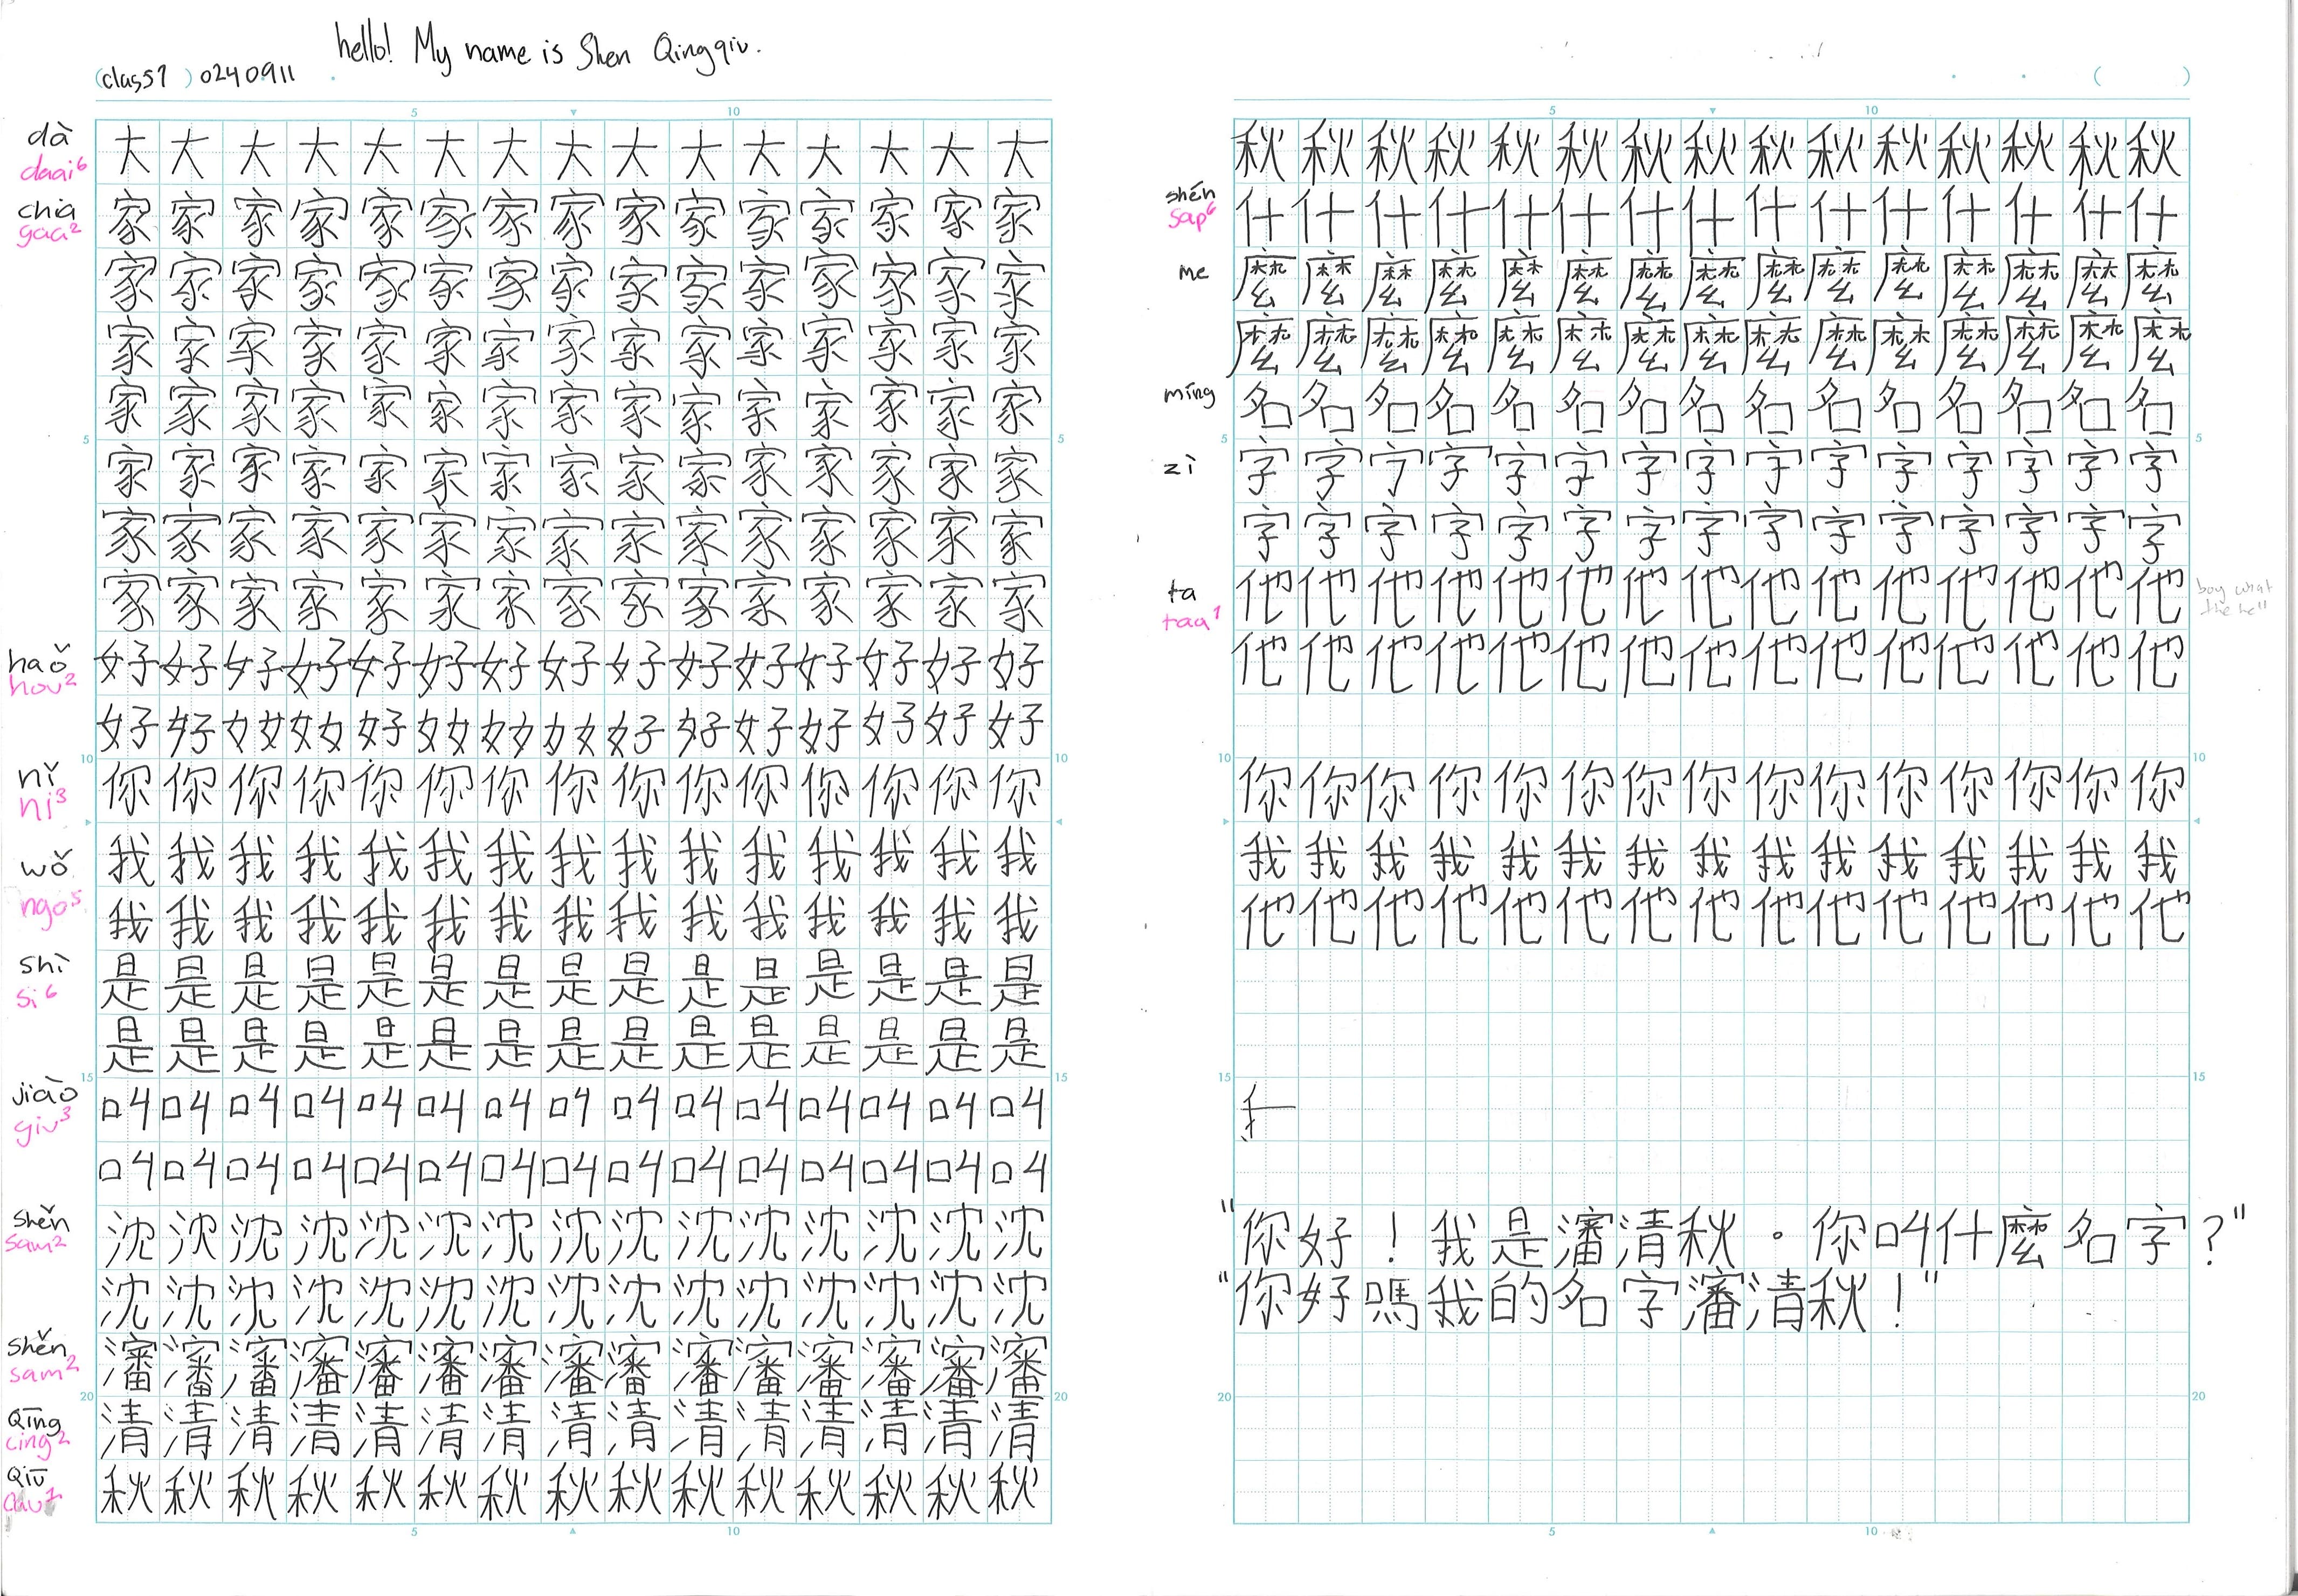 hello! My name is Shen Qingqiu.
(class1 ) 0240911
5 10
dà daai⁶ 大大大大大大大大大大大大大大大
chia gaa² 家家家家家家家家家家家家家家家
家家家家家家家家家家家家家家家
家家家家家家家家家家家家家家家
家家家家家家家家家家家家家家家
5 家家家家家家家家家家家家家家家 5
家家家家家家家家家家家家家家家
家家家家家家家家家家家家家家家
haǒ hou² 好好好好好好好好好好好好好好好
好好奻奻好奻奻奻好好好好好好好
10 10
nǐ ni³ 你你你你你你你你你你你你你你你
wǒ 我我我我我我我我我我我我我我我
ngo⁵ 我我我我我我我我我我我我我我我
shì si⁶ 是是是是是是是是是是是是是是是
是是是是是是是是是是是是是是是
15 15
jiào giu³ 叫叫叫叫叫叫叫叫叫叫叫叫叫叫叫
叫叫叫叫叫叫叫叫叫叫叫叫叫叫叫
shěn sam² 沈沈沈沈沈沈沈沈沈沈沈沈沈沈沈
沈沈沈沈沈沈沈沈沈沈沈沈沈沈沈
shěn sam² 瀋瀋瀋瀋瀋瀋瀋瀋瀋瀋瀋瀋瀋瀋瀋
20 20
Qīng cing² 清清清清清清清清清清清清清清清
Qiū 秋秋秋秋秋秋秋秋秋秋秋秋秋秋秋
5 10
( )
5 10
秋秋秋秋秋秋秋秋秋秋秋秋秋秋秋
shén sap⁶ 什什什什什什什什什什什什什什什
me 麼麼麼麼麼麼麼麼麼麼麼麼麼麼麼
麼麼麼麼麼麼麼麼麼麼麼麼麼麼麼
míng 名名名名名名名名名名名名名名名
5 5
zì 字字字字字字字字字字字字字字字
字字字字字字字字字字字字字字字
ta taa¹ 他他他他他他他他他他他他他他他 boy what the hell
他他他他他他他他他他他他他他他
10 10
你你你你你你你你你你你你你你你
我我我我我我我我我我我我我我我
他他他他他他他他他他他他他他他
15 15
"你好！我是瀋清秋。你叫什麼名字?"
"你好嗎我的名字瀋清秋！"
20 20
5 10